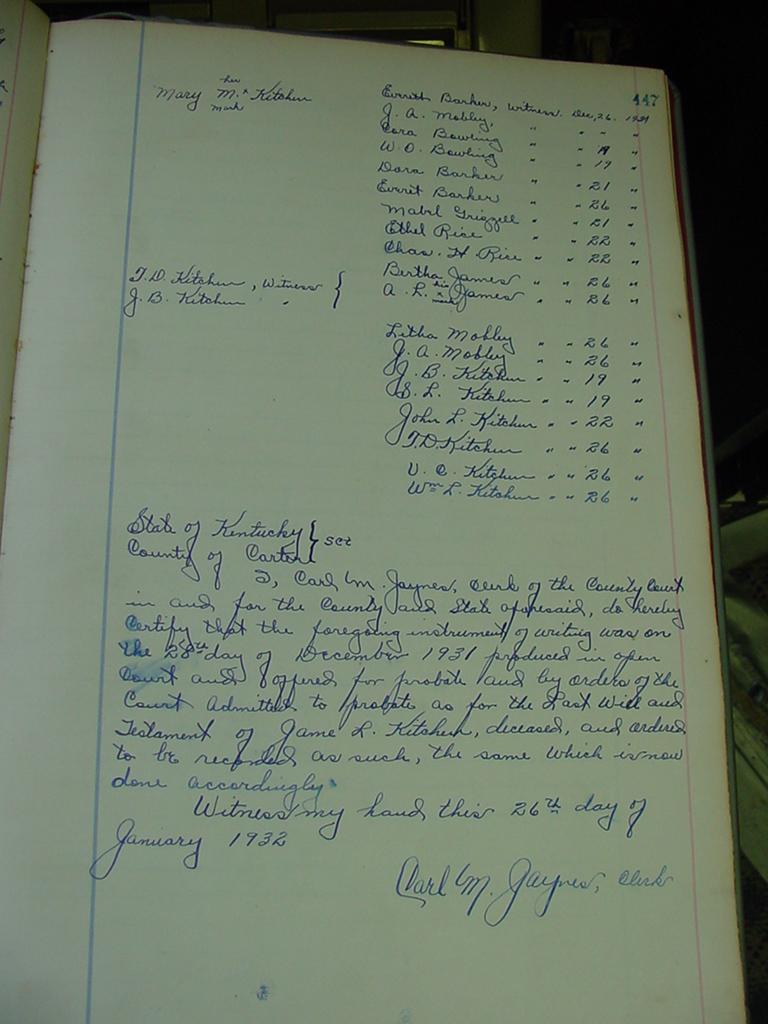 447
her
Mary M. x Kitchen
mark
Everith Barker, Witness. Dec, 26, 1931
J. A. Mobley, " " " "
Cora Bowling " " 19 "
W. O. Bowling " " 19 "
Dora Barker " " 21 "
Everit Barker " " 26 "
Mabel Grizzell " " 21 "
Ethel Rice " " 22 "
Chas. H. Rice " " 22 "
T. D. Kitchen, Witness { Bertha James " " 26 "
J. B. Kitchen " A. L. his x mark James " " 26 "
Litha Mobley " " 26 "
J. A. Mobley " " 26 "
J. B. Kitchen " " 19 "
S. L. Kitchen " " 19 "
John L. Kitchen " " 22 "
T. D. Kitchen " " 26 "
V. C. Kitchen " " 26 "
Wm L. Kitchen " " 26 "
State of Kentucky } sct
County of Carter
I, Carl M. Jaynes, Clerk of the County Court
in and for the County and State aforesaid, do hereby
Certify that the foregoing instrument of writing was on
the 28th day of December 1931 produced in open
Court and offered for probate and by orders of the
Court Admitted to probate as for the Last Will and
Testament of Jame L. Kitchen, deceased, and ordered
to be recorded as such, the same which is now
done accordingly.
Witness my hand this 26th day of
January 1932
Carl M. Jaynes, Clerk